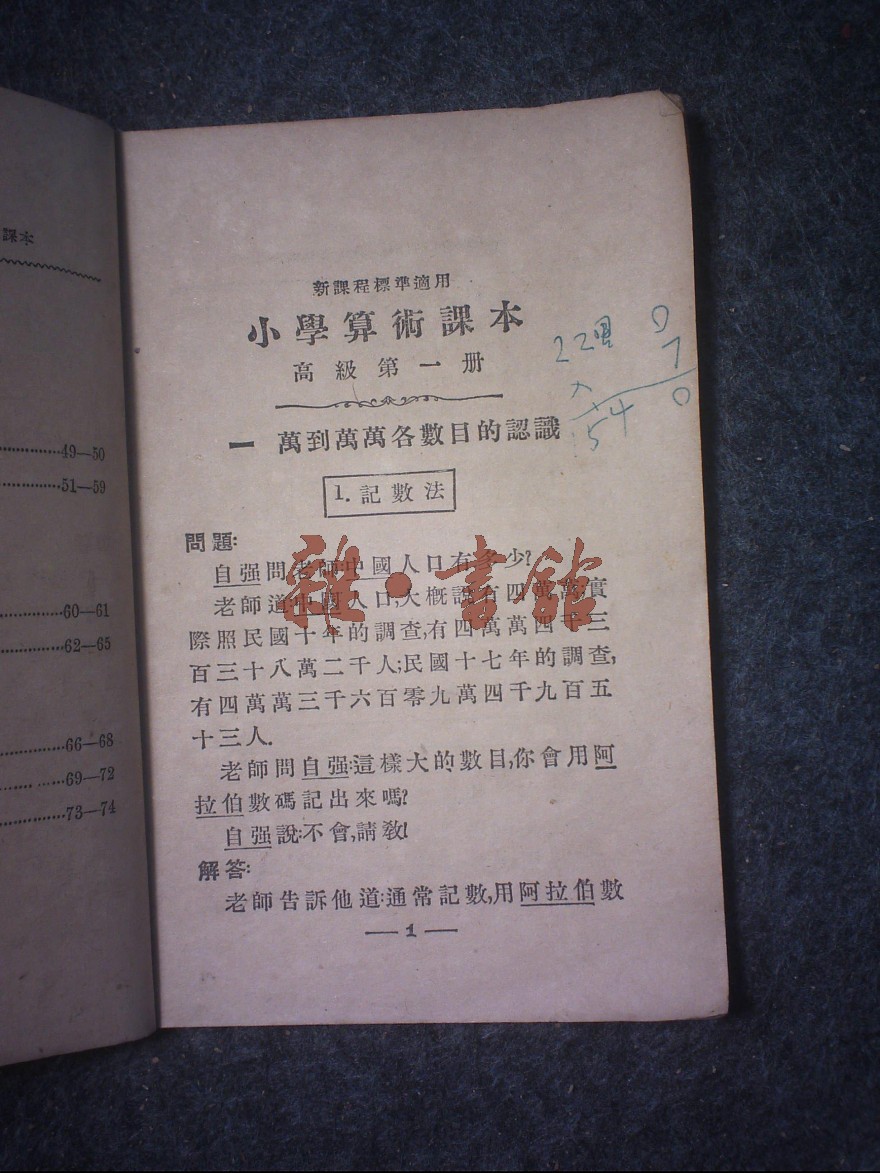 課本
49—50
51—59
60—61
62—65
66—68
69—72
73—74
新課程標準適用
小學算術課本
高級第一册
一 萬到萬萬各數目的認識
1. 記數法
問題:
自强問老師:中國人口有多少?
老師道:中國人口,大概說有四萬萬;實
際照民國十年的調查,有四萬萬四千三
百三十八萬二千人;民國十七年的調查,
有四萬萬三千六百零九萬四千九百五
十三人.
老師問自强:這樣大的數目,你會用阿
拉伯數碼記出來嗎?
自强說:不會,請教!
解答:
老師告訴他道:通常記數,用阿拉伯數
— 1 —
雜·書館
22 0
× 7
54 0